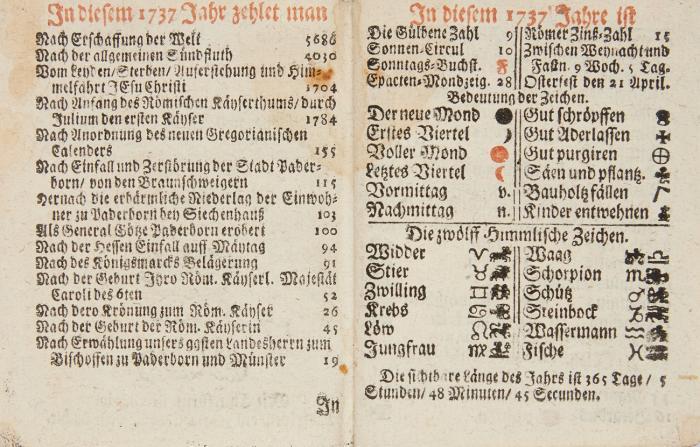 In diesem 1737 Jahr zehlet man
Nach Erschaffung der Welt 5686
Nach der allgemeinen Sündfluth 4030
Vom Leyden/Sterben/ Auferstehung und Him-
melfahrt JEsu Christi 1704
Nach Anfang des Römischen Käyserthums/durch
Julium den ersten Käyser 1784
Nach Anordnung des neuen Gregorianischen
Calenders 155
Nach Einfall und Zerstörung der Stadt Pader-
born/ von den Braunschweigern 115
Dernach die erbärmliche Niederlag der Einwoh-
ner zu Paderborn bey Siechenhauß 103
Als General Götze Paderborn erobert 100
Nach der Hessen Einfall auff Mäytag 94
Nach des Königsmarcks Belägerung 91
Nach der Geburt Ihro Röm. Käyserl. Majestät
Caroli des 6ten 52
Nach dero Krönung zum Röm. Käyser 26
Nach der Geburt der Röm. Käyserin 45
Nach Erwählung unsers ggsten Landesherrn zum
Bischoffen zu Paderborn und Münster 19
In
In diesem 1737 Jahre ist
Die Güldene Zahl 9 Römer Zinß-Zahl 15
Sonnen-Circul 10 Zwischen Weynacht und
Sonntags-Buchst. F Faßn. 9 Woch. 5 Tag.
Epacten-Mondzeig. 28 Osterfest den 21 April.
Bedeutung der Zeichen.
Der neue Mond Gut schröpffen
Erstes Viertel Gut Aderlassen
Voller Mond Gut purgiren
Letztes Viertel Säen und pflantz.
Vormittag v. Bauholtz fällen
Nachmittag n. Kinder entwehnen
Die zwölff Himmlische Zeichen.
Widder ♈ Waag ♎
Stier ♉ Schorpion ♏
Zwilling ♊ Schütz ♂
Krebs ♋ Steinbock
Löw ♌ Wassermann ♒
Jungfrau ♍ Fische ♓
Die sichtbare Länge des Jahrs ist 365 Tage/ 5
Stunden/ 48 Minuten/ 45 Secunden.